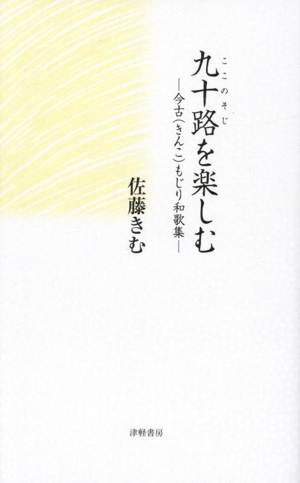 九十路を楽しむ
ここのそじ
―今古（きんこ）もじり和歌集―
佐藤きむ
津軽書房